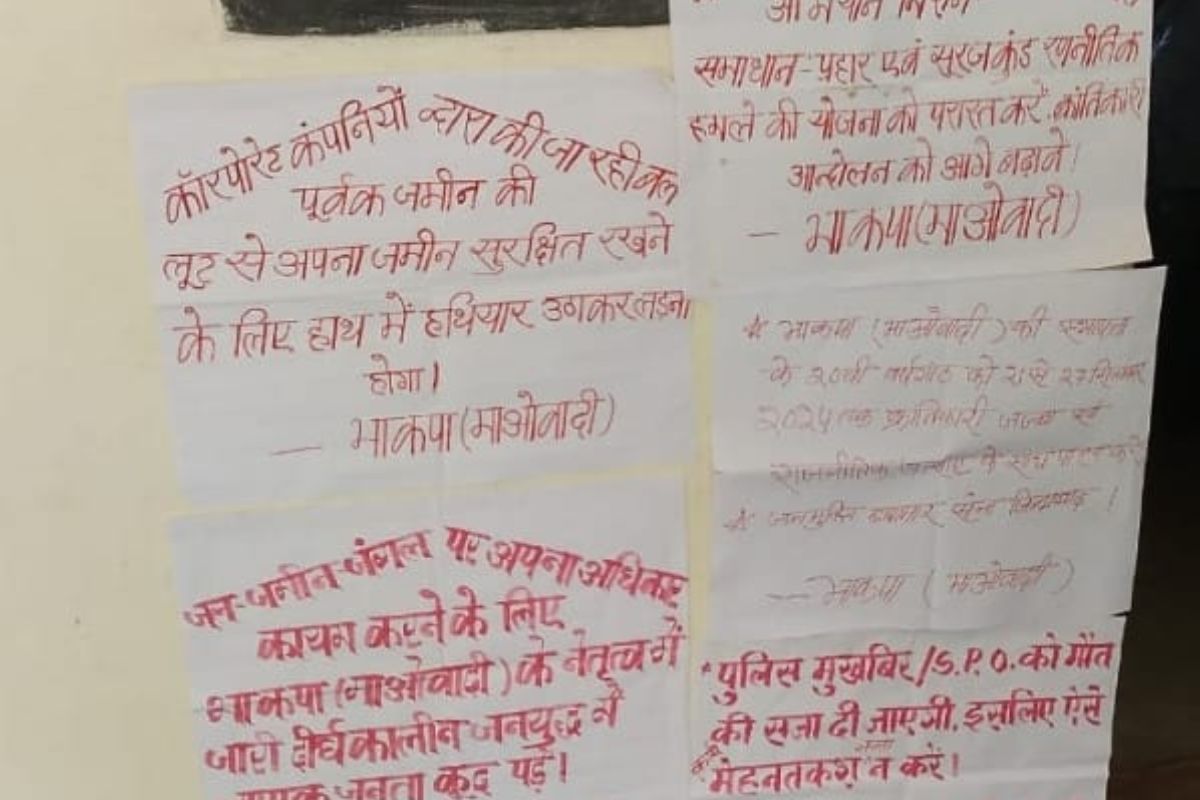 कॉरपोरेट कंपनियों द्वारा की जा रही बल
पूर्वक जमीन की
लूट से अपना जमीन सुरक्षित रखने
के लिए हाथ में हथियार उठाकर लड़ना
होगा।
— भाकपा (माओवादी)
समाधान-प्रहार एवं सूरजकुंड रणनीतिक
हमले की योजना को परास्त करें, क्रांतिकारी
आन्दोलन को आगे बढ़ावें।
— भाकपा (माओवादी)
* भाकपा (माओवादी) की स्थापना
के 20वीं वर्षगांठ को 21 से 27 सितम्बर
2024 तक क्रांतिकारी एवं
राजनीतिक के साथ पालन करें
* जनमुक्ति छापामार सेना जिन्दाबाद।
— भाकपा (माओवादी)
जन-जमीन-जंगल पर अपना अधिकार
कायम करने के लिए
भाकपा (माओवादी) के नेतृत्व में
जारी दीर्घकालीन जनयुद्ध में
जनता कूद पड़ें।
* पुलिस मुखबिर/S.P.O. को मौत
की सजा दी जाएगी, इसलिए ऐसे
मेहनतकश न करें।